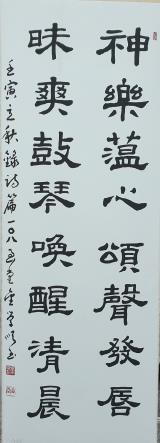 神樂蕰心頌聲發唇
昧爽鼓琴喚醒清晨
壬寅立秋錄詩篇一〇八